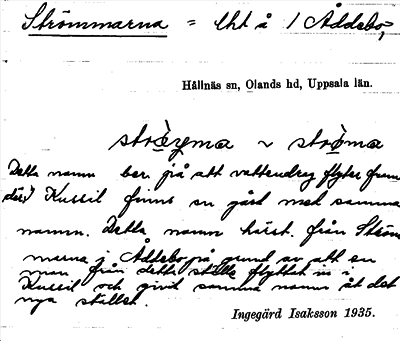 Strömmarna = tht å i Åddebo,
Hållnäs sn, Olands hd, Uppsala län.
ströyma ~ ströma
Detta namn ber. på att vattendrag flyter fram
där. I Kussil finns en gård med samma
namn. Detta namn härst. från Ström
marna i Åddebo på grund av att en
man från detta ställe flyttat in i
Kussil och givit samma namn åt det
nya stället.
Ingegärd Isaksson 1935.